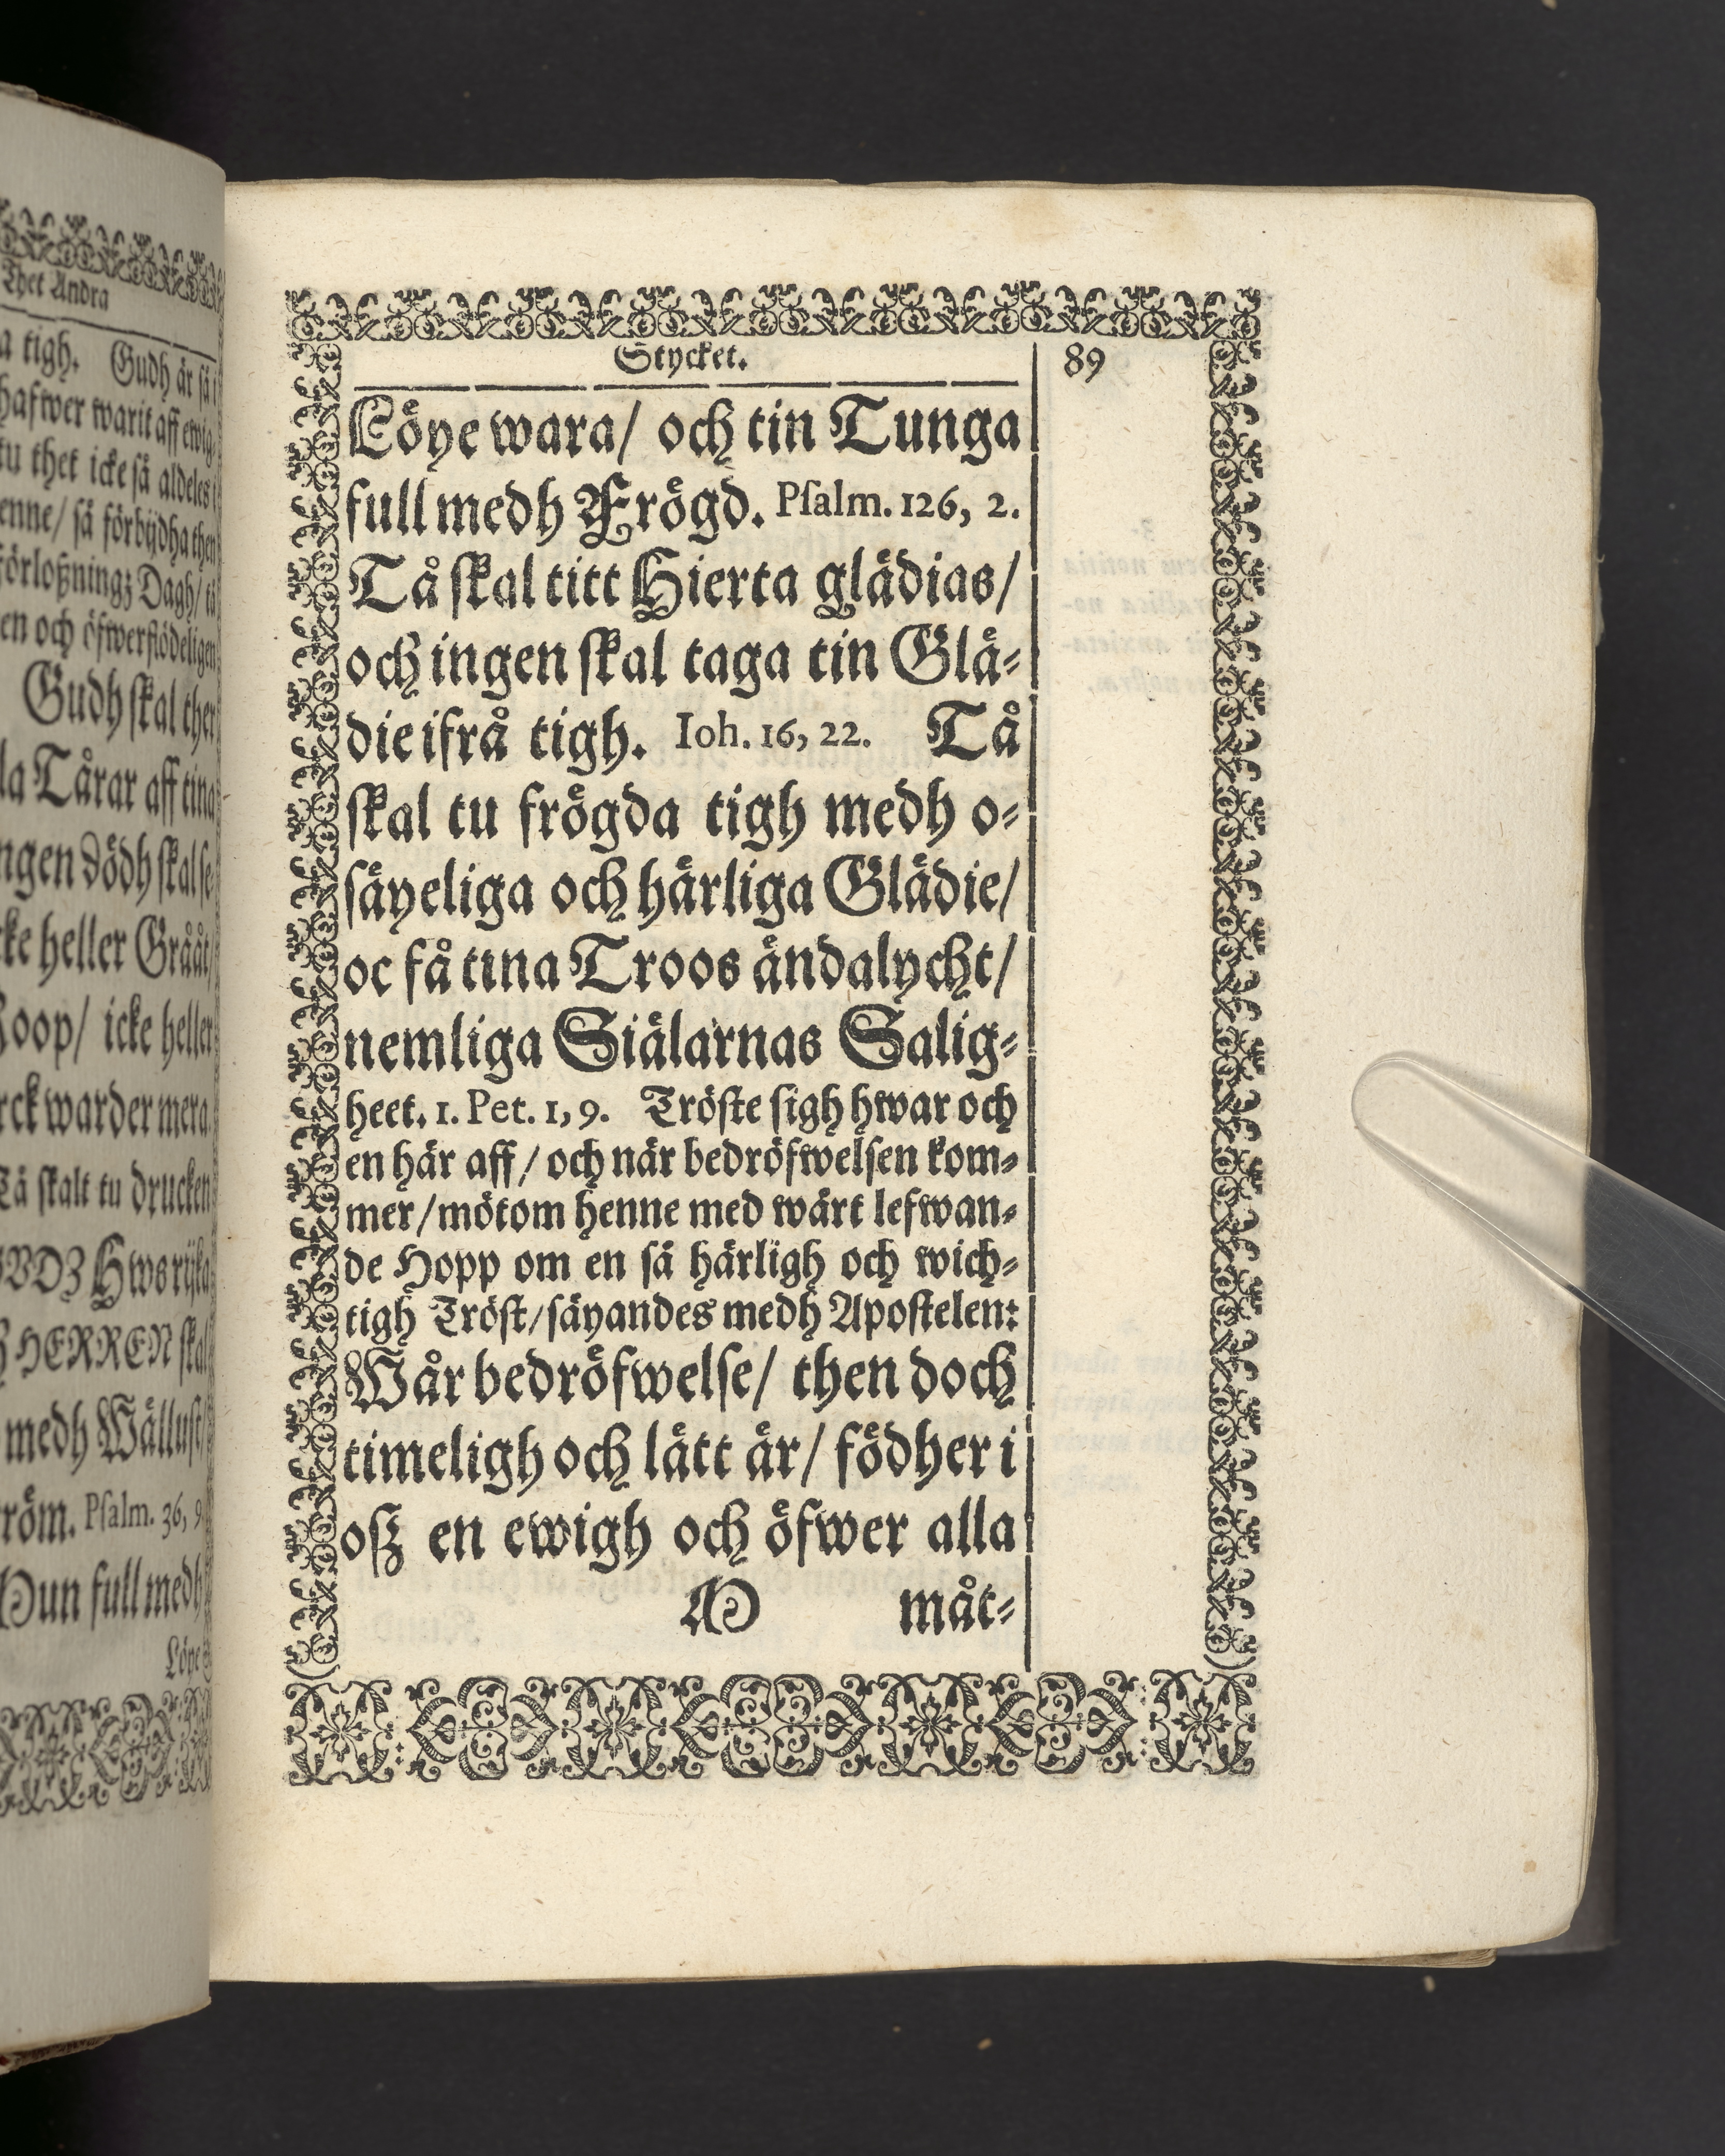 Thet Andra
a tigh. Gudh är så i
hafwer warit aff ewig-
tu thet icke så aldeles i
enne/ så förbijdha then
förloßningz Dagh/ tå
en och öfwerflödeligen
Gudh skal ther
la Tårar aff tina
ngen Dödh skal se-
cke heller Gråât/
Roop/ icke heller
rck warder mera.
Tå skalt tu drucken
GVDZ Hws rijka
HERREN skal
medh Wällust/
röm. Psalm. 36, 9
Mun full medh
Löye
Stycket. 89
Löye wara/ och tin Tunga
full medh Frögd. Psalm. 126, 2.
Tå skal titt Hierta glädias/
och ingen skal taga tin Glä-
die ifrå tigh. Ioh. 16, 22. Tå
skal tu frögda tigh medh o-
säyeliga och härliga Glädie/
oc få tina Troos ändalycht/
nemliga Siälarnas Salig-
heet. 1. Pet. 1, 9. Tröste sigh hwar och
en här aff/ och när bedröfwelsen kom-
mer/ mötom henne med wårt lefwan-
de Hopp om en så härligh och wich-
tigh Tröst/ säyandes medh Apostelen:
Wår bedröfwelse/ then doch
timeligh och lätt är/ födher i
oß en ewigh och öfwer alla
M måt-